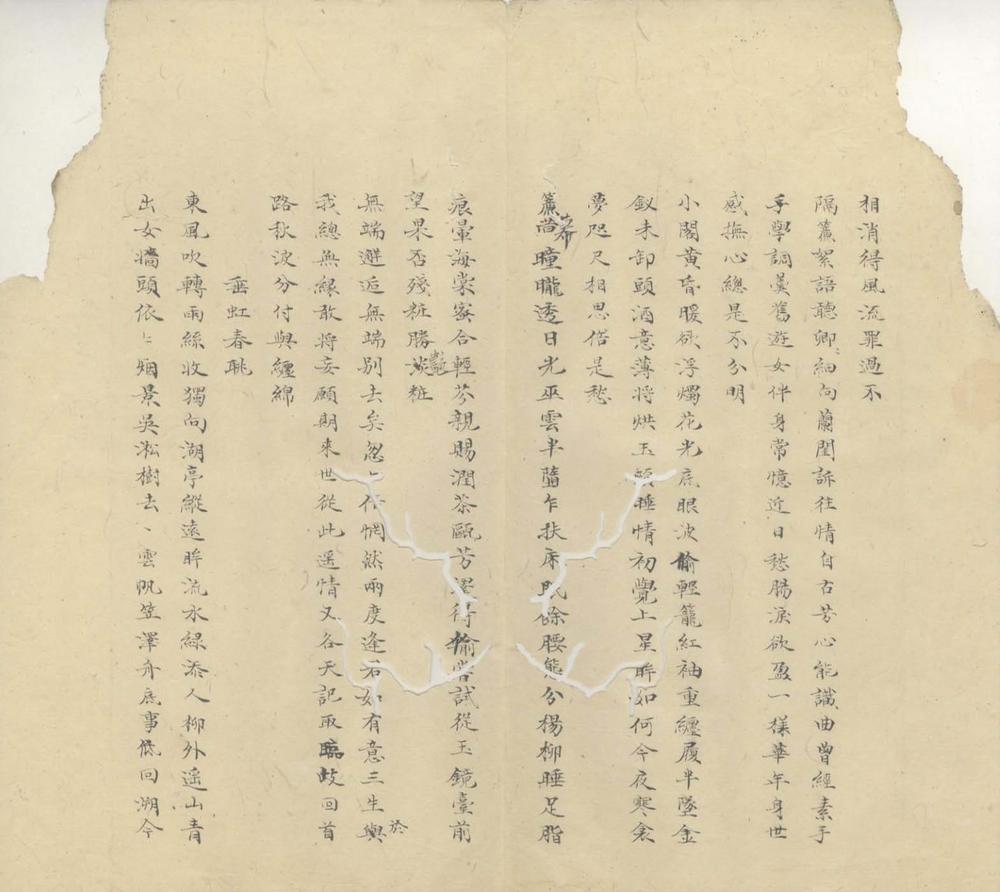 相消得風流罪過不
隔簾絮語聽卿卿細向蘭閨訴往情自古芳心能識曲曾經素手
手學調羹舊遊女伴身常憶近日愁腸淚欲盈一樣華年身世
感撫心總是不分明
小閣黃昏暖欲浮燭花光底眼波偷輕籠紅袖重纏履半墜金
釵未卸頭酒意薄將烘玉頰睡情初覺上星眸如何今夜寒衾
夢咫尺相思偺是愁
簾幕曈曨透日光巫雲半墮乍扶床餘腰態分楊柳睡足脂
痕暈海棠蜜合輕芬親賜潤茶甌芳澤得偷嘗試從玉鏡臺前
望果否殘粧勝淡艷粧
無端邂逅無端別去矣忽忽作惘然兩度逢君如有意三生與於
我總無緣敢將妄願期來世從此遥情又各天記取臨歧回首
路秋波分付與纏綿
垂虹春眺
東風吹轉雨絲收獨向湖亭縱遠眸流水綠添人柳外遥山青
出女墻頭依〻烟景吳淞樹去〻雲帆笠澤舟底事低回溯今